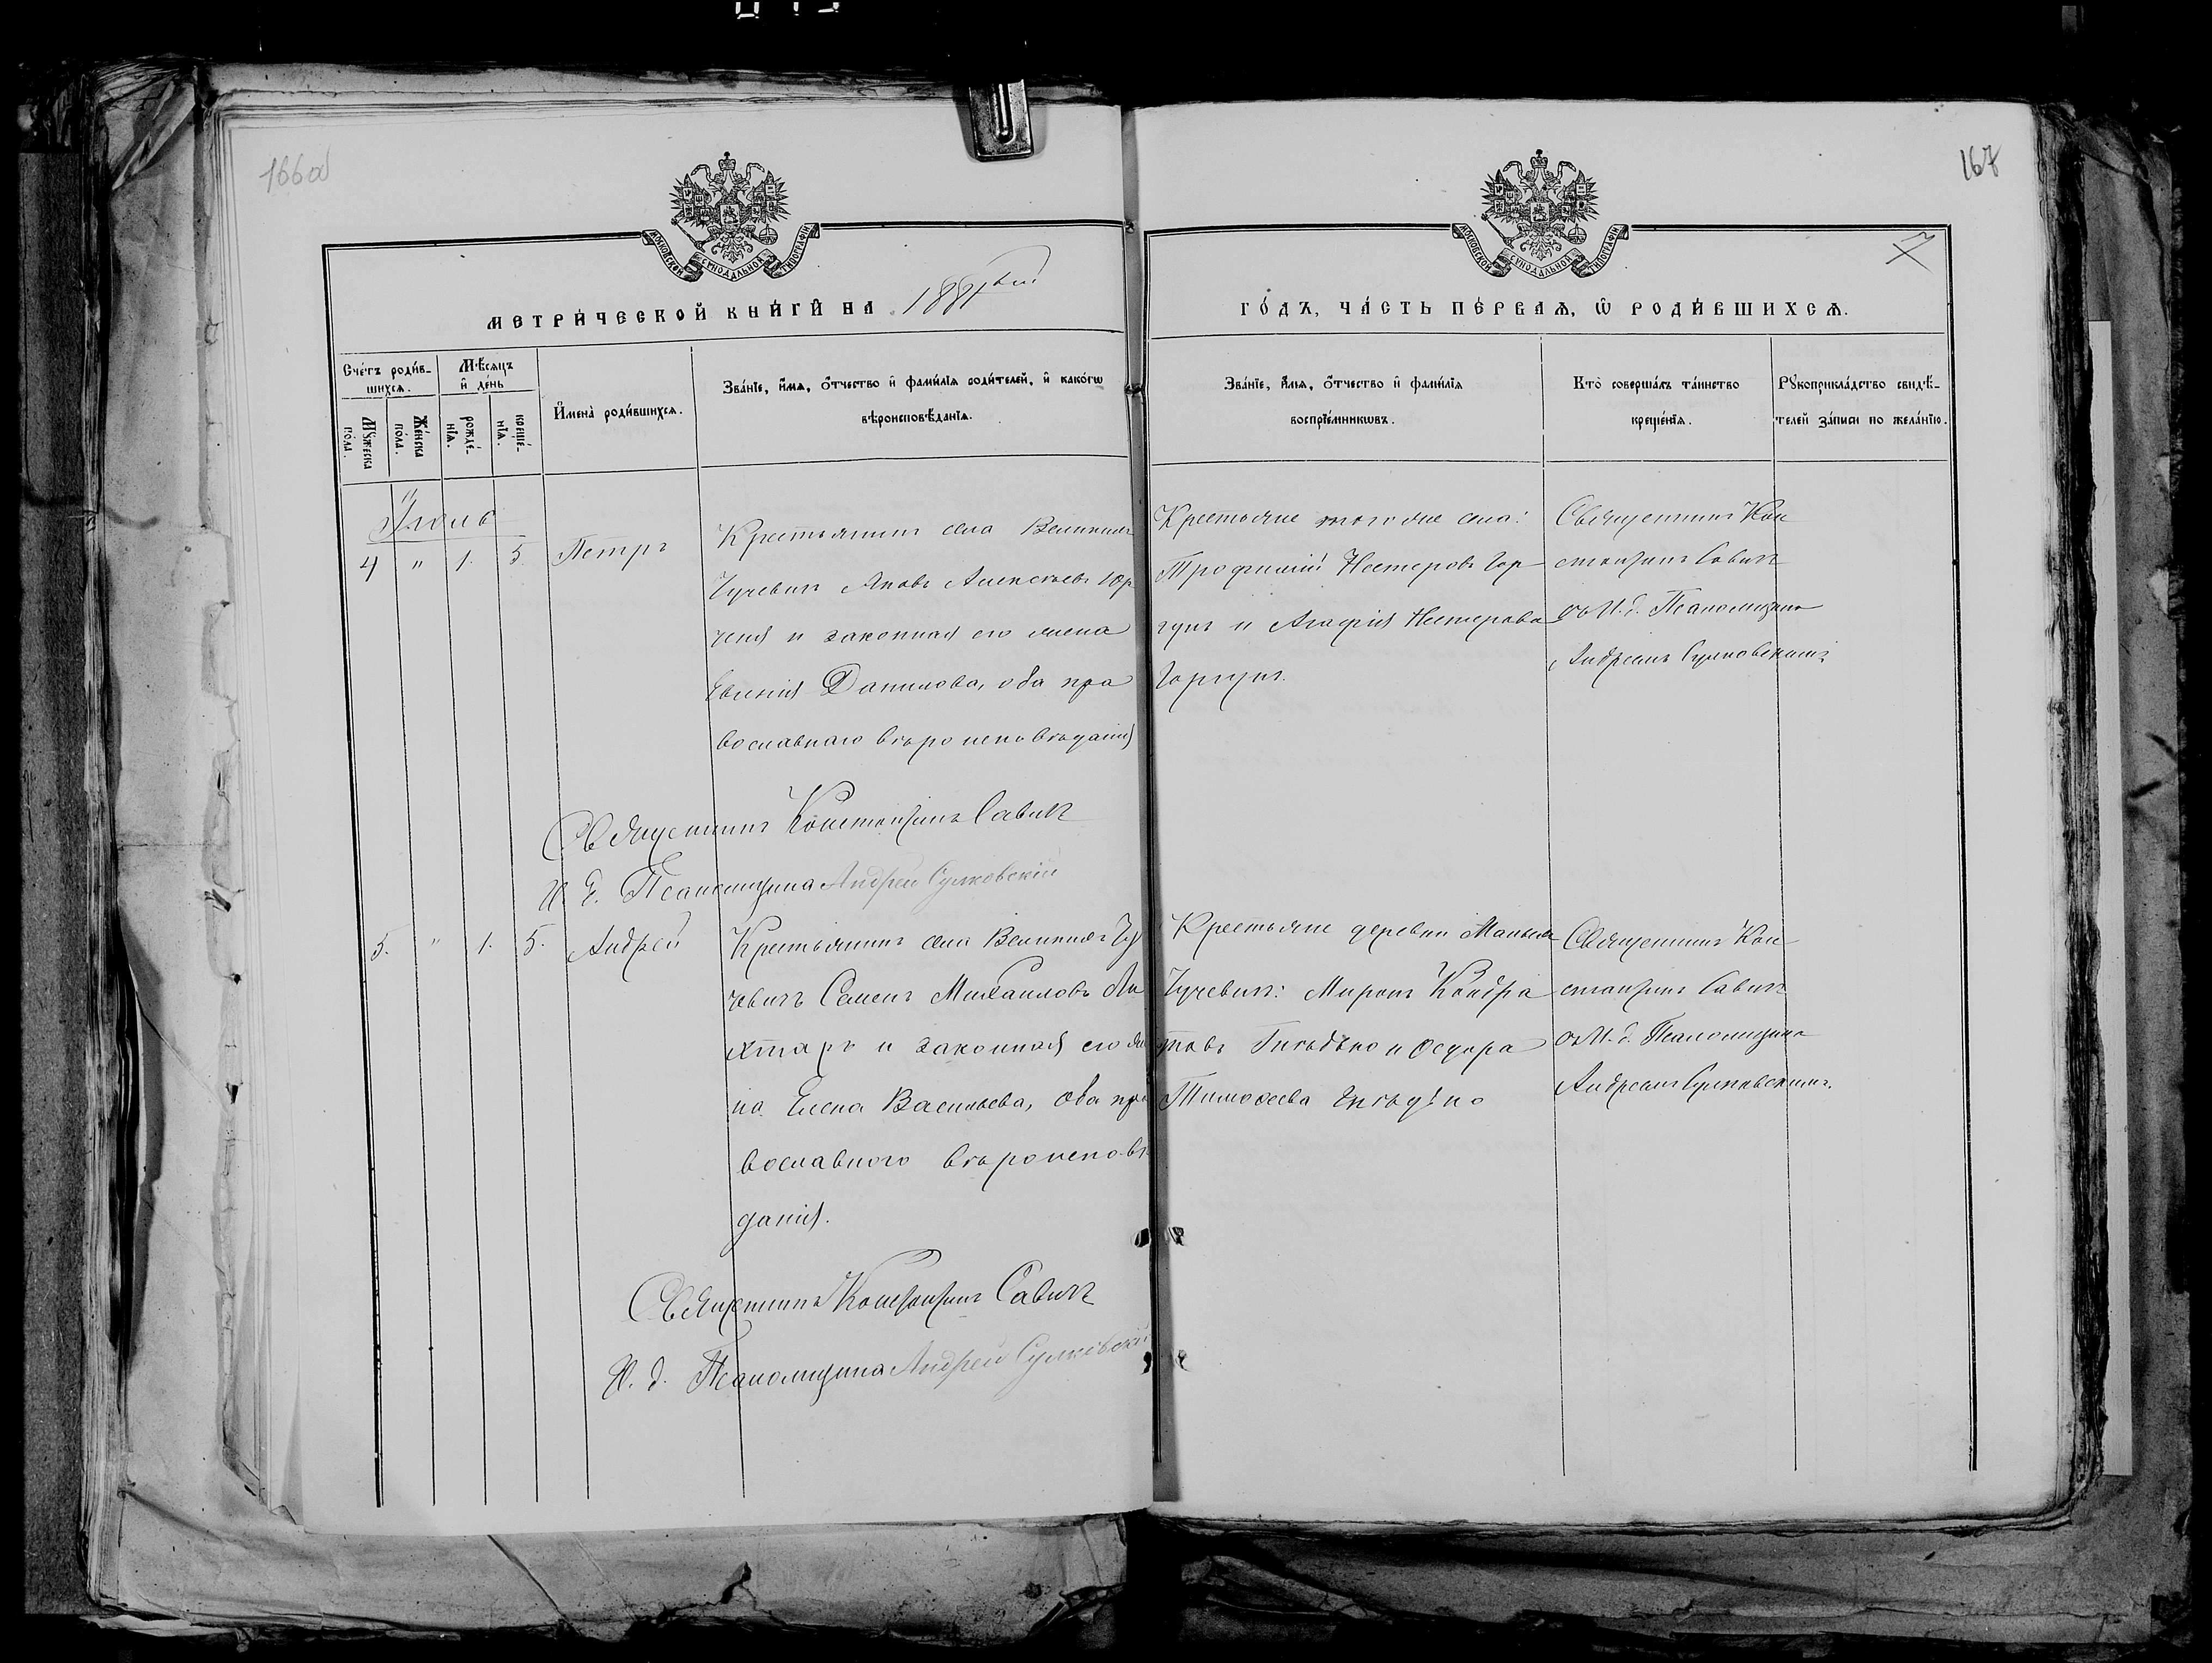 166об
167
МОСКОВСКОЙ СѴНОДАЛЬНОЙ ТИПОГРАФІИ
МОСКОВСКОЙ СѴНОДАЛЬНОЙ ТИПОГРАФІИ
МЕТРИ́ЧЕСКОЙ КНИ́ГИ НА
ГО́ДЪ, ЧА́СТЬ ПЕ́РВАЯ, Ѡ РОДИ́ВШИХСЯ.
Сче́тъ роди́в-
шихся.
Му́жеска
по́ла.
Же́нска
по́ла.
Мѣ́сяцъ
и де́нь
рожде́-
нїя.
креще́-
нїя.
Имена̀ роди́вшихся.
Зва́нїе, и́мя, о́тчество и фами́лїя роди́телей, и како́гѡ
вѣроисповѣ́данїя.
Зва́нїе, и́мя, о́тчество и фами́лїя
воспрїе́мникѡвъ.
Кто̀ соверша́лъ та́инство
креще́нїя.
Рꙋкоприкла́дство свидѣ́-
телей за́писи по жела́нїю.
Іюль
4 " 1. 5. Петръ
Крестьянинъ села Великихъ
Чучевичъ Яковъ Алексѣевъ
и законная его жена
Евгенія Данилова, оба пра
вославнаго вѣроисповѣданія
Крестьяне того же села:
Трофимій Нестеровъ Гор
гунъ и Агафія Нестерова
Горгунъ.
Священникъ Кон
стантинъ Савичъ
съ И. д. Псаломщика
Андреемъ
Священникъ Константинъ Савичъ
И. д. Псаломщика Андрей
5. " 1. 5. Андрей
Крестьянинъ села Великихъ Чу
чевичъ Семенъ Михаиловъ Ли
хтаръ и законная его же
на Елена Васильева, оба пра
вославного вѣроисповѣ
данія.
Крестьяне деревни Малыхъ
Чучевичъ: Миронъ Кондра
товъ и Ѳедора
Тимоѳеева
Священникъ Кон
стантинъ Савичъ
съ И. д. Псаломщика
Андреемъ
Священникъ Константинъ Савичъ
И. д. Псаломщика Андрей